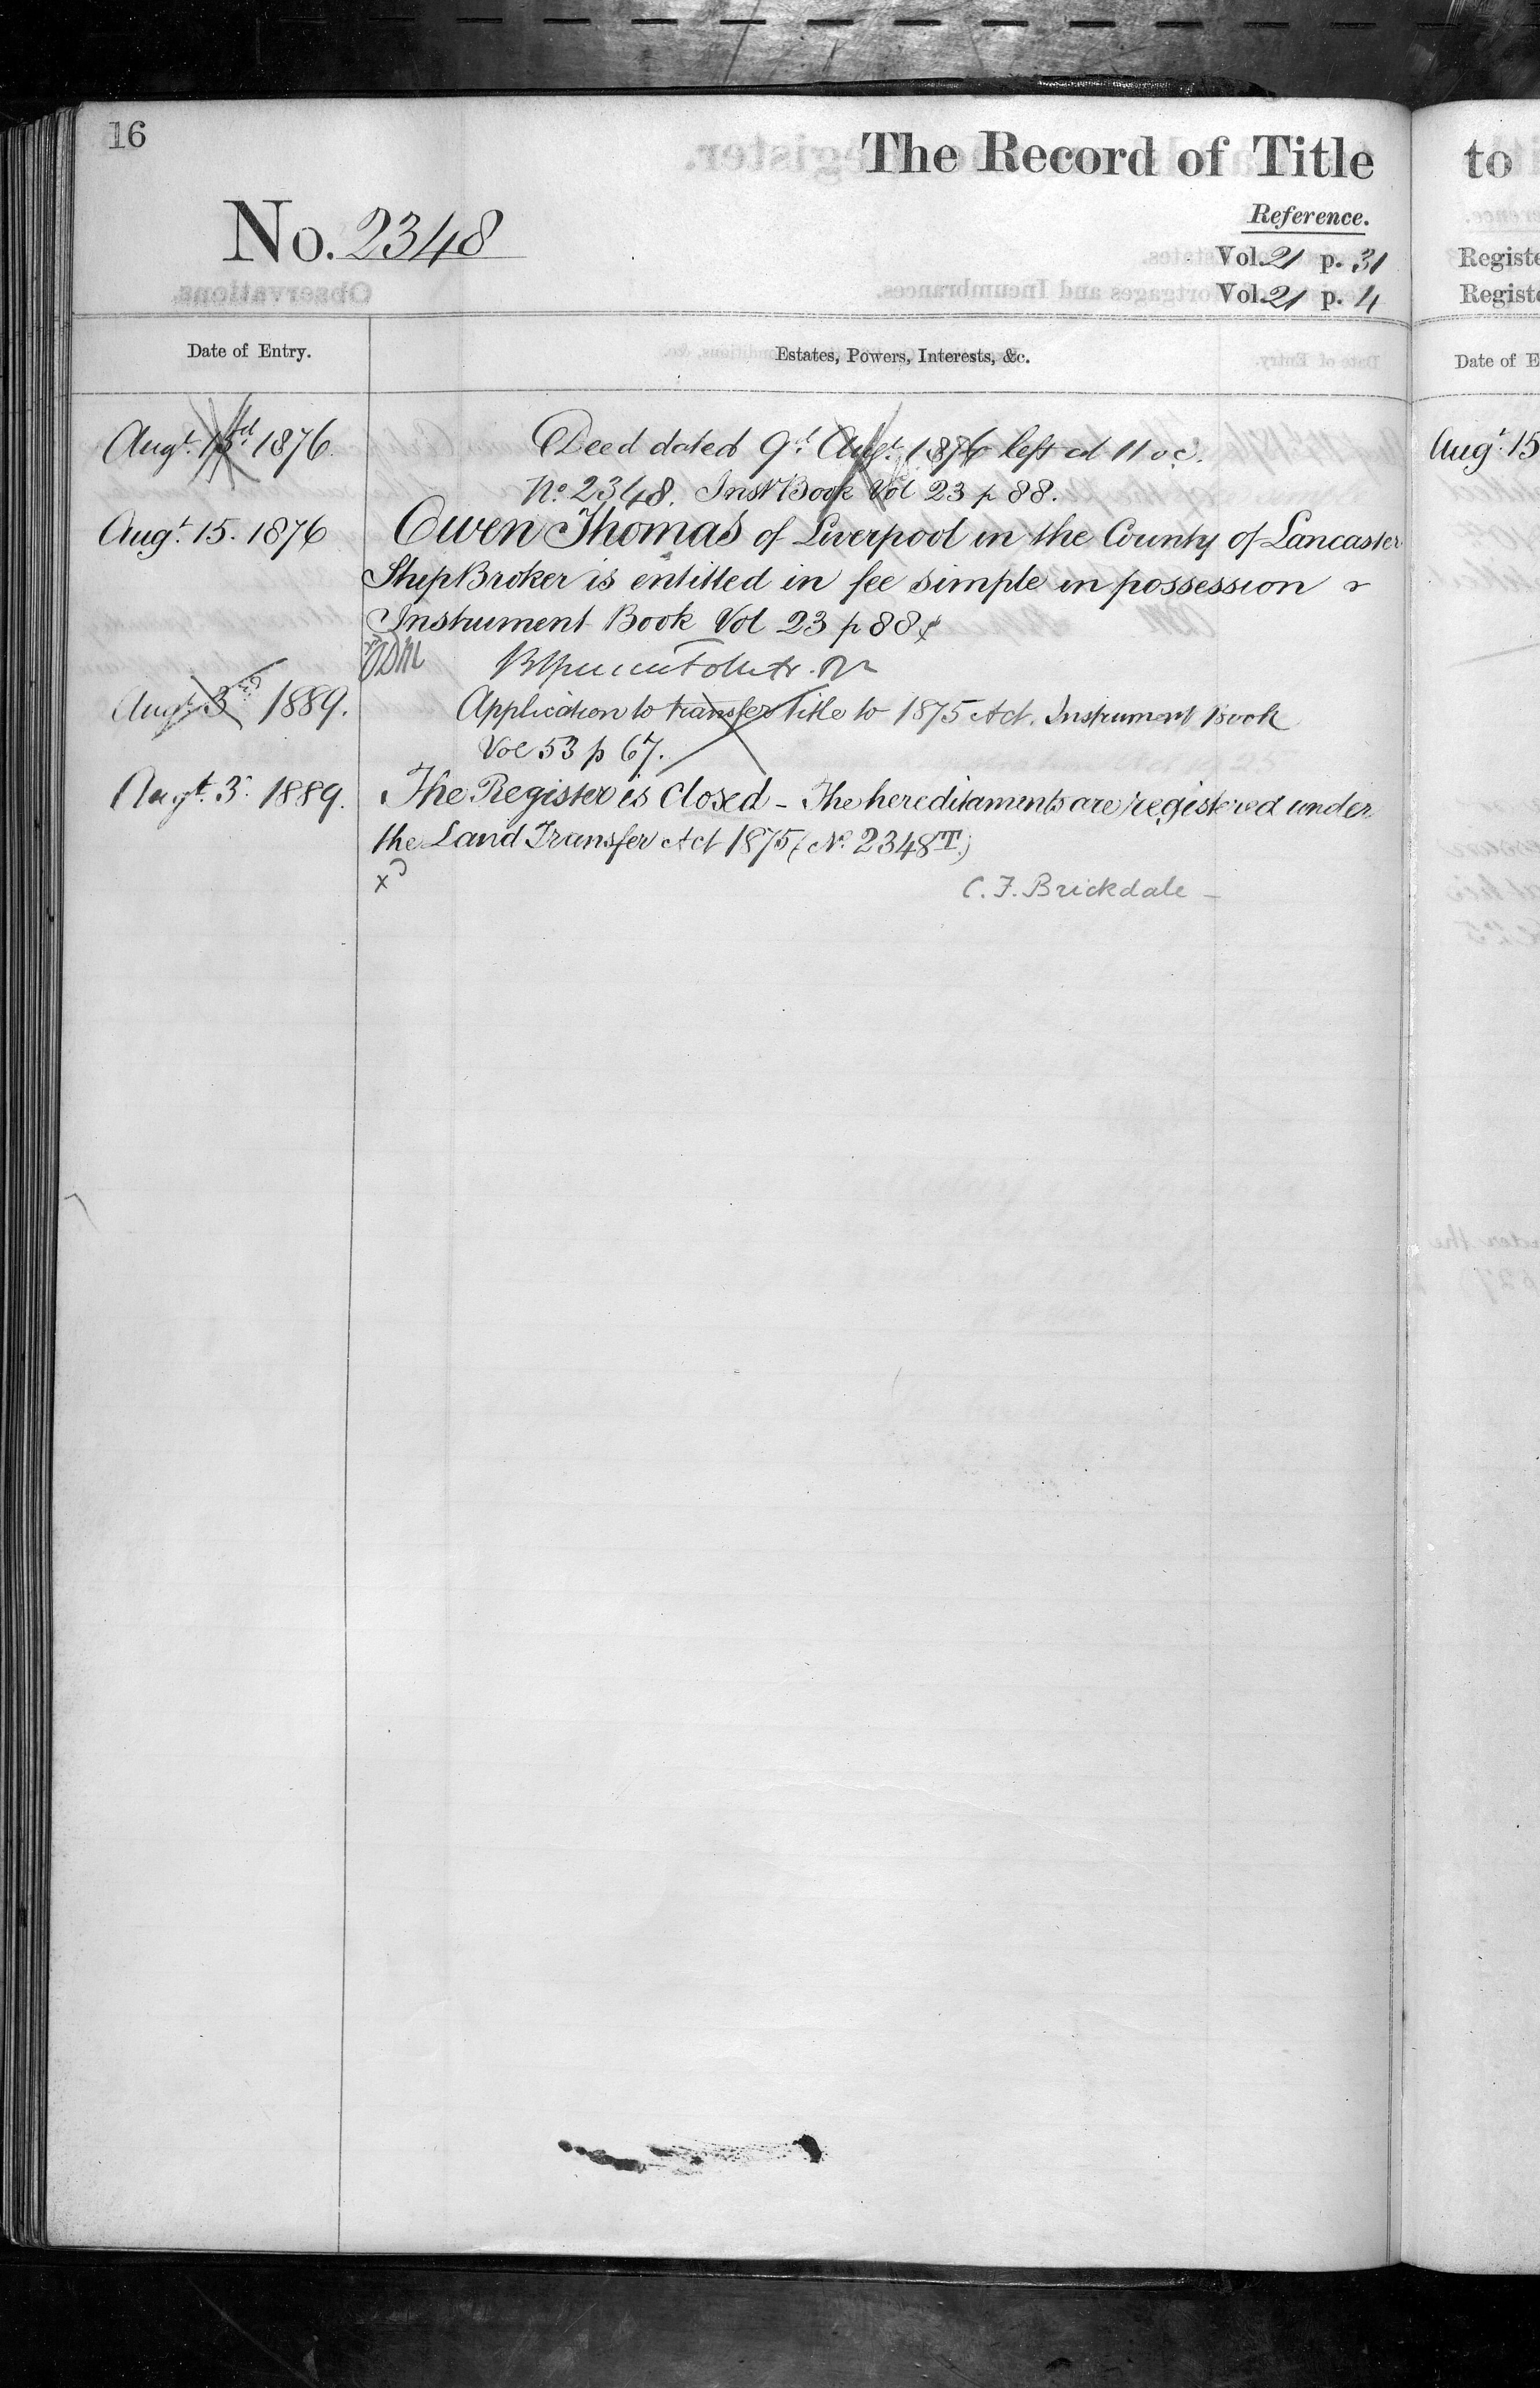 16
The Record of Title
to
No. 2348
Reference.
Vol. 21 p. 31
Registe
Vol. 21 p. 4
Registe
Date of Entry.
Estates, Powers, Interests, &c.
Date of E
Augt. 15d. 1876.
Deed dated 9d. Augt. 1876 left at 11 oc.
Augt. 15
No. 2348. Inst Book Vol 23 p 88.
Augt. 15. 1876
Owen Thomas of Liverpool in the County of Lancaster
Ship Broker is entitled in fee simple in possession
Instrument Book Vol 23 p 88
Augt. 3rd 1889.
Application to transfer Title to 1875 Act. Instrument Book
Vol 53 p 67.
Augt. 3d. 1889.
The Register is Closed - The hereditaments are registered under
the Land Transfer Act 1875 (No. 2348T.)
C. F. Brickdale -